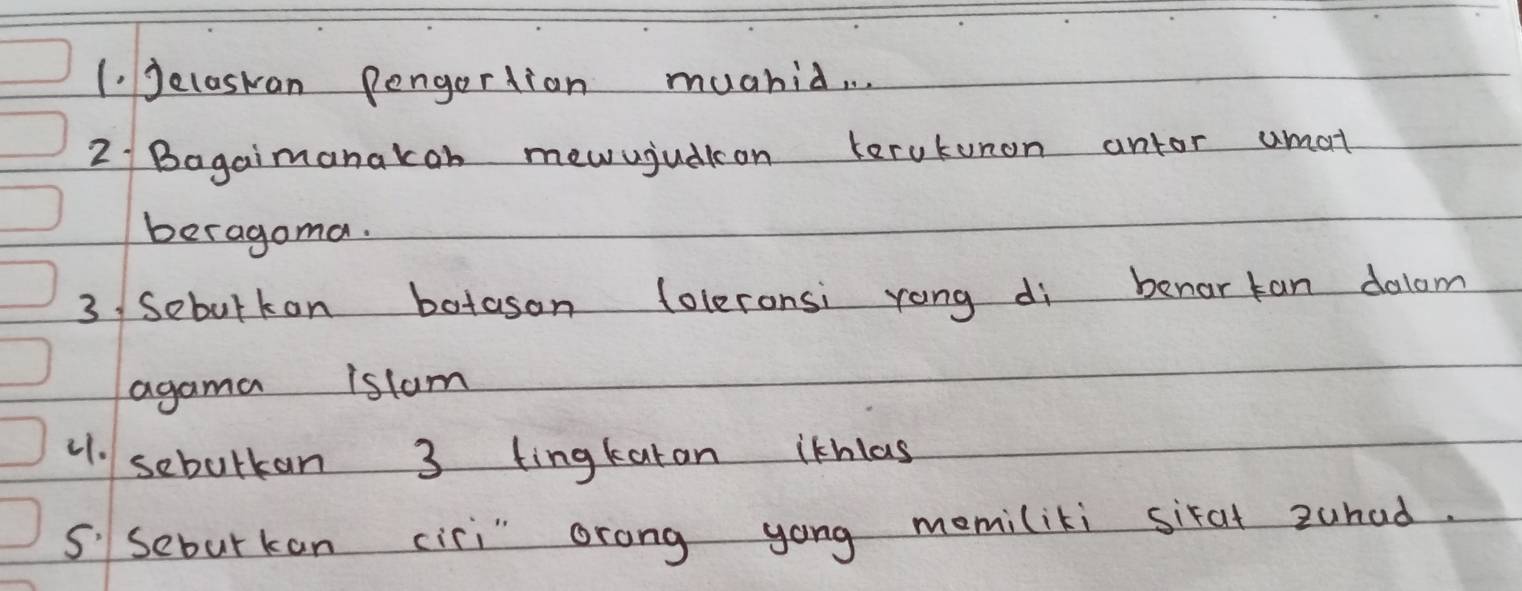 1. Jelaskan Pengertian muahid...
2. Bagaimanakah mewujudkan kerukunan antar umat
beragama.
3. Sebutkan batasan toleransi yang di benarkan dalam
agama islam
4. sebutkan 3 tingkatan ikhlas
5. Sebutkan ciri" orang yang memiliki sifat zuhud.